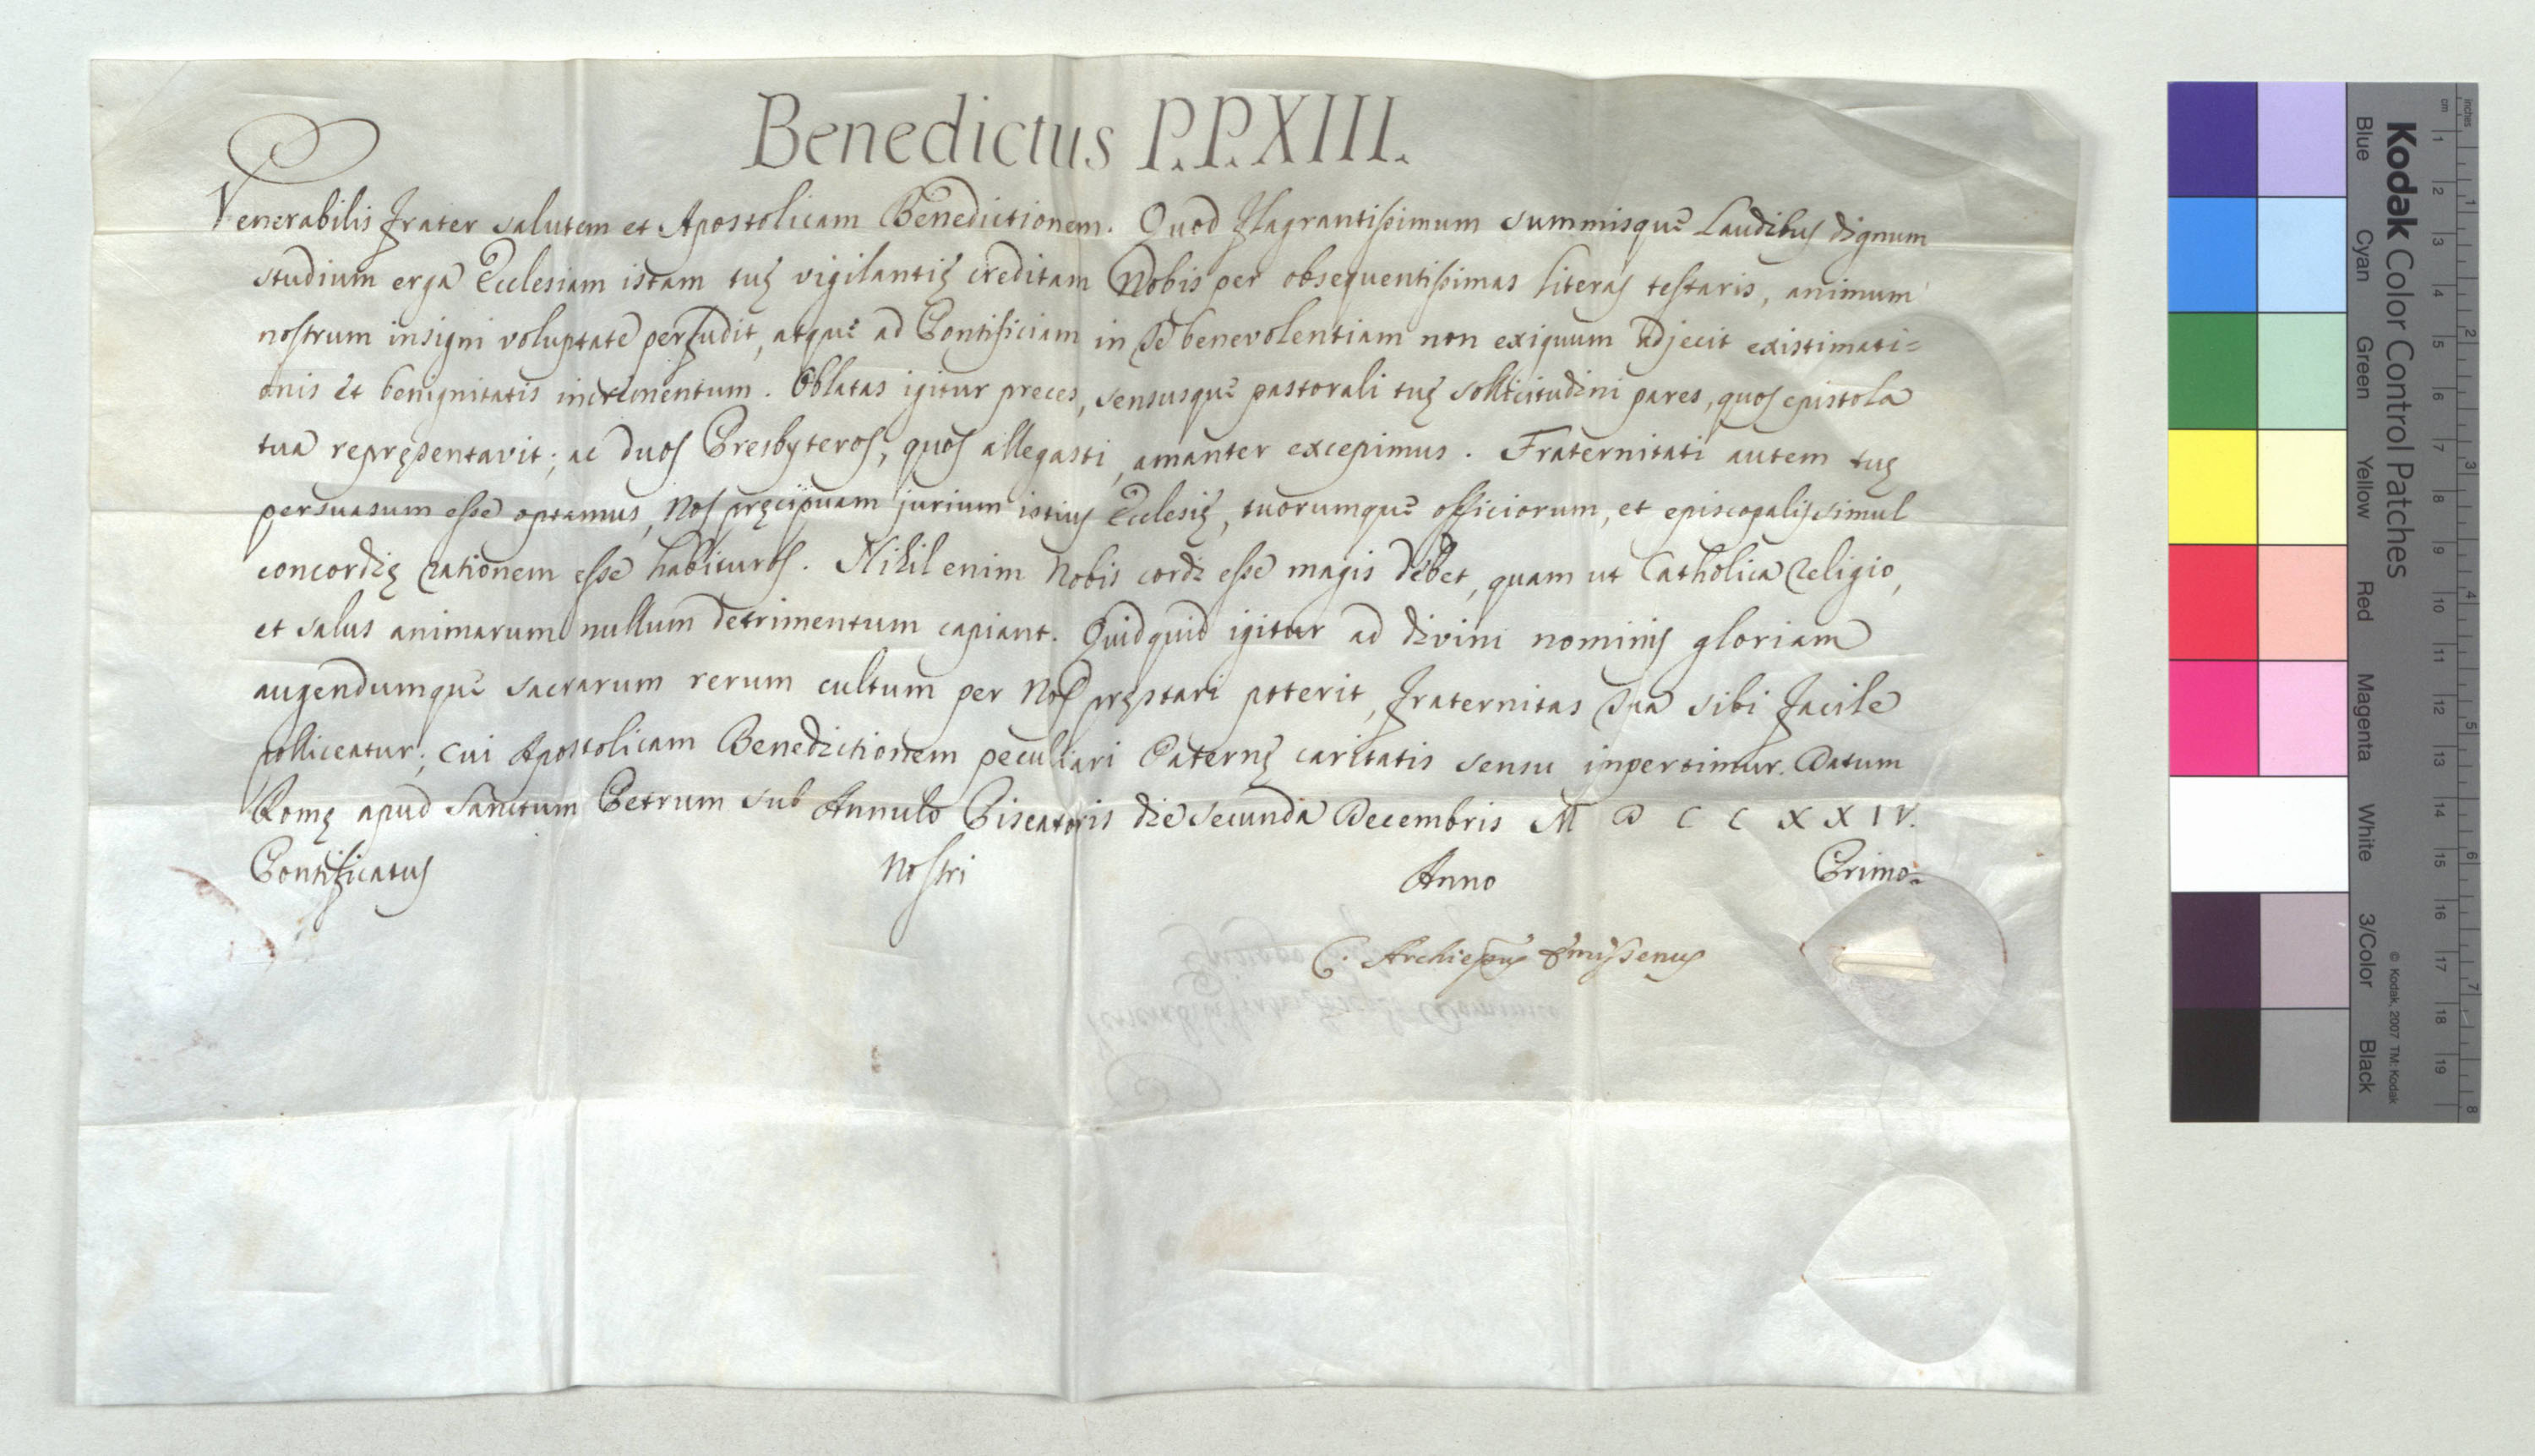 Benedictus P.P. XIII.
Venerabilis Frater salutem et Apostolicam Benedictionem. Quod flagrantissimum summisque Laudibus dignum
studium erga Ecclesiam istam tuę vigilantię creditam Nobis per obsequentissimas literas testaris, animum
nostrum insigni voluptate perfudit, atque ad Pontificiam in Te benevolentiam non exiguum adjecit existimati=
onis et benignitatis incrementum. Oblatas igitur preces, sensusque pastorali tuę sollicitudini pares, quos epistola
tua repręsentavit; ac duos Presbyteros, quos allegasti, amanter excepimus. Fraternitati autem tuę
persuasum esse optamus, Nos pręcipuam jurium istius Ecclesię, tuorumque officiorum, et episcopalis simul
concordię rationem esse habituros. Nihil enim Nobis cordi esse magis debet, quam ut Catholica Religio,
et salus animarum nullum detrimentum capiant. Quidquid igitur ad divini nominis gloriam
augendumque sacrarum rerum cultum per Nos pręstari poterit, Fraternitas Tua sibi facile
polliceatur; cui Apostolicam Benedictionem peculiari Paternę caritatis sensu inpertimur. Datum
Romę apud Sanctum Petrum sub Annulo Piscatoris die secunda Decembris M D C C X X I V.
Pontificatus Nostri Anno Primo.
C. Archiepus Emissenus
Kodak Color Control Patches
Blue Cyan Green Yellow Red Magenta White 3/Color Black
© Kodak, 2007 TM: Kodak
cm 1 2 3 4 5 6 7 8 9 10 11 12 13 14 15 16 17 18 19
inches 1 2 3 4 5 6 7 8